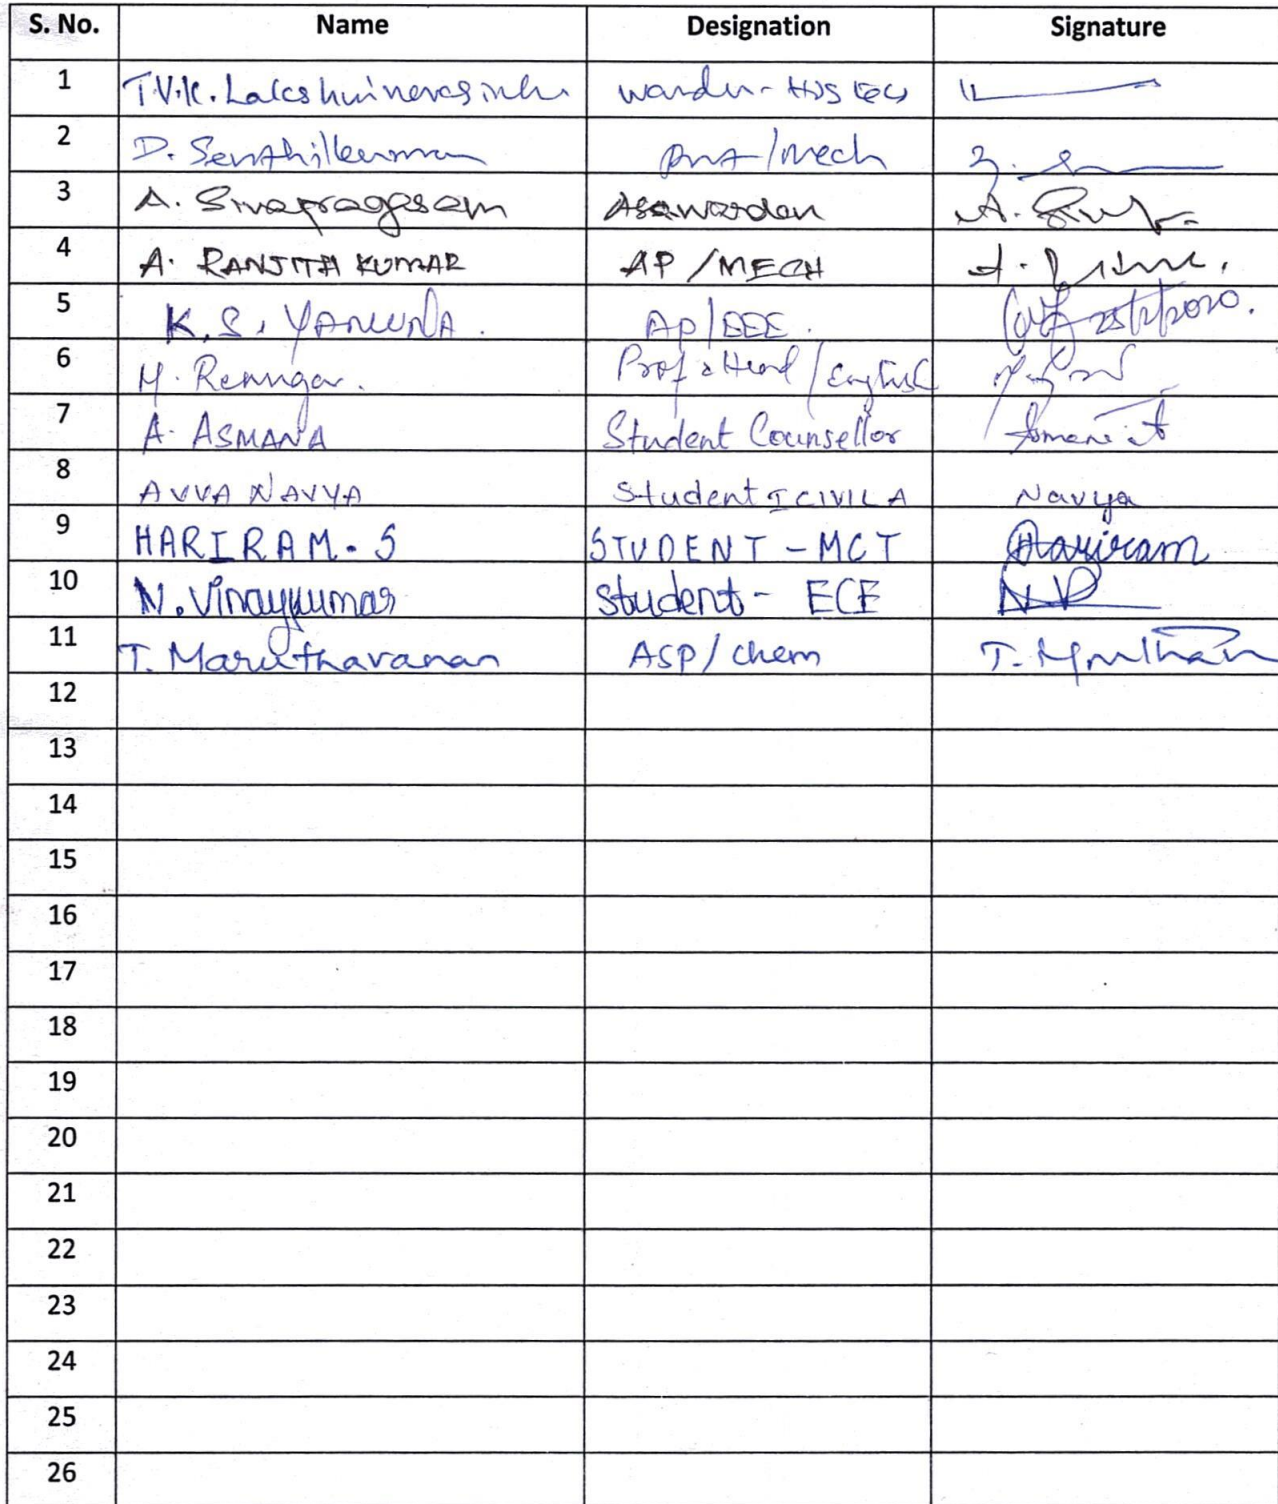 S. No. Name Designation Signature
1 T.V.K. Lakshminarasimhan
2 D. Senthilkumar /Mech
3 A. Sivapragasam
4 A. RANJITH KUMAR AP /MECH
5 K.S. YAMUNA. AP/EEE.
6 M. Renuga. Prof & Head /English
7 A. ASMANA Student Counsellor
8 AVVA NAVYA Student I CIVIL A Navya
9 HARIRAM. S STUDENT - MCT Hariram
10 N. Vinaykumar Student - ECE
11 T. Maruthavanan ASP/chem
12
13
14
15
16
17
18
19
20
21
22
23
24
25
26